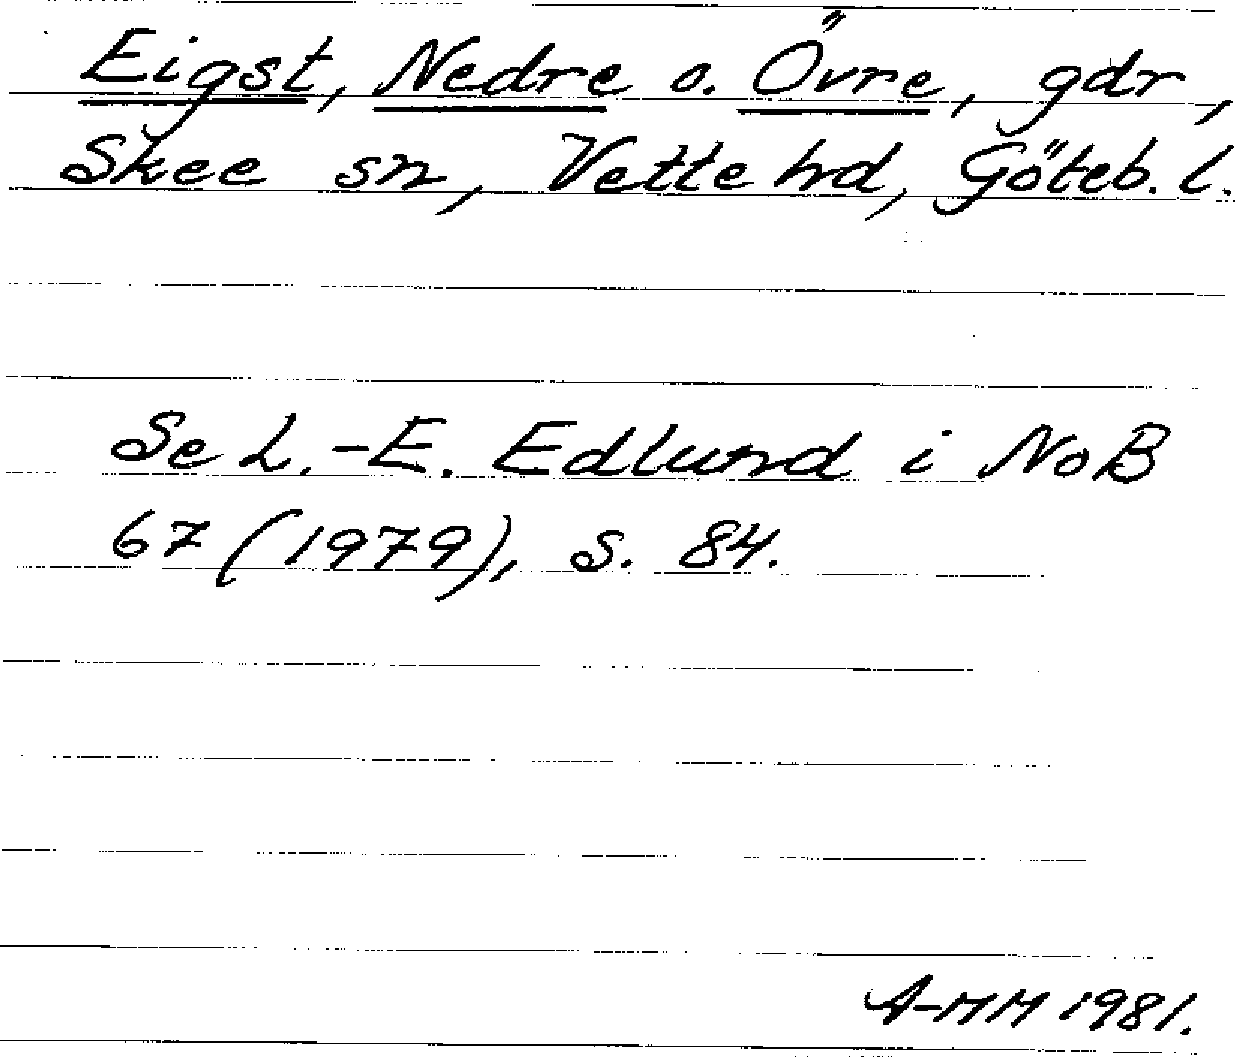 Eigst, Nedre o. Övre, gdr,
Skee sn, Vette hd, Göteb. l.
Se L.-E. Edlund i NoB
67 (1979), s. 84.
A-MM 1981.